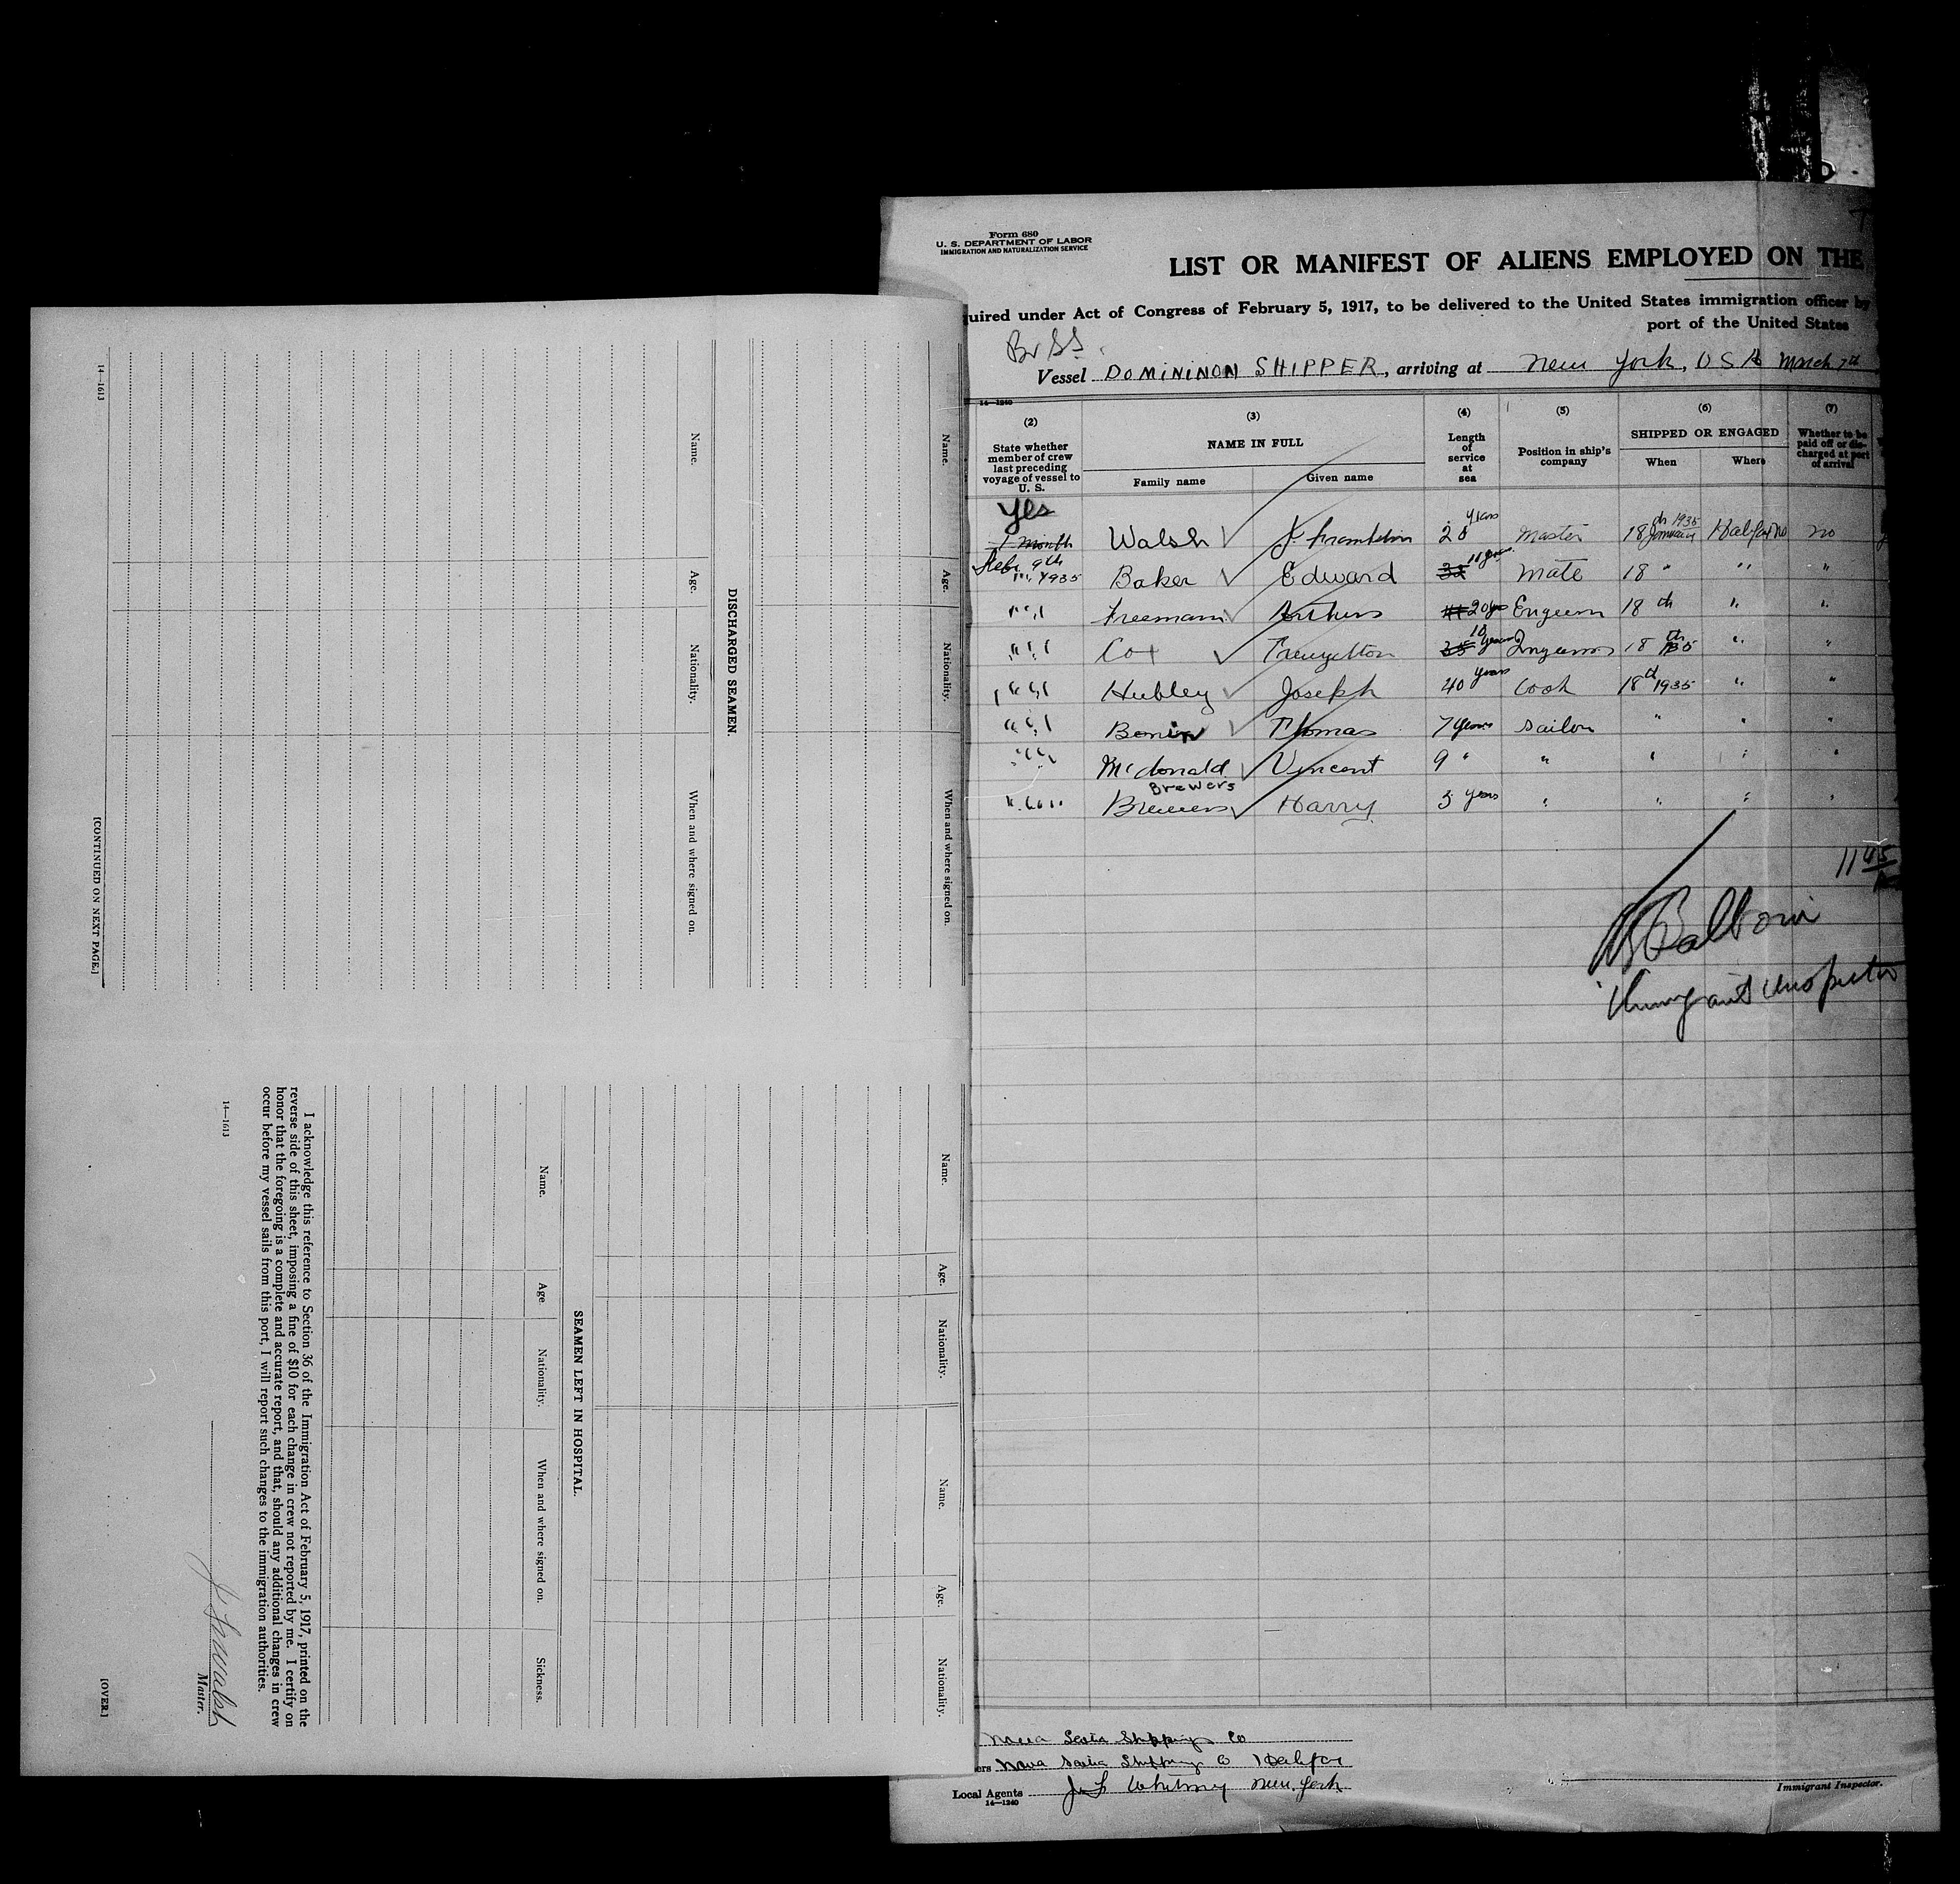 Form 680
U. S. DEPARTMENT OF LABOR
IMMIGRATION AND NATURALIZATION SERVICE
LIST OR MANIFEST OF ALIENS EMPLOYED ON THE
uired under Act of Congress of February 5, 1917, to be delivered to the United States immigration officer by
port of the United States
Br SS.
Vessel DOMININON SHIPPER, arriving at New York, USA March 7th
14—1240
(2) (3) (4) (5) (6) (7)
State whether member of crew last preceding voyage of vessel to U. S.
NAME IN FULL
Family name Given name
Length of service at sea
Position in ship's company
SHIPPED OR ENGAGED
When Where
Whether to be paid off or discharged at port of arrival
Yes
1 month Walsh J. Franklin 28 years Master 18th January 1935 Halifax NS no
Febr 9th 1935 Baker Edward 32 11 years Mate 18 " " "
" " Freeman Arthur 20 yrs 18 th " "
" " Cox 35 18 years 18 th 35 " "
" " Hubley Joseph 40 years Cook 18th 1935 " "
" " Thomas 7 years Sailor " " "
" " McDonald Vincent 9 " " " " "
Brewers
" " Brewers Harry 3 years " " " "
11 45
Immigrant Inspector
Nova Scotia Shipping Co
ers Nova Scotia Shipping Co Halifax
Local Agents J F Whitney New York
14—1240
Immigrant Inspector.
Name. Age. Nationality. When and where signed on.
DISCHARGED SEAMEN.
Name. Age. Nationality. When and where signed on.
14—1613
[CONTINUED ON NEXT PAGE.]
Name. Age. Nationality. Name. Age. Nationality.
SEAMEN LEFT IN HOSPITAL.
Name. Age Nationality. When and where signed on. Sickness.
I acknowledge this reference to Section 36 of the Immigration Act of February 5, 1917, printed on the
reverse side of this sheet, imposing a fine of $10 for each change in crew not reported by me. I certify on
honor that the foregoing is a complete and accurate report, and that, should any additional changes in crew
occur before my vessel sails from this port, I will report such changes to the immigration authorities.
14—1613
J F Walsh
Master.
[OVER.]